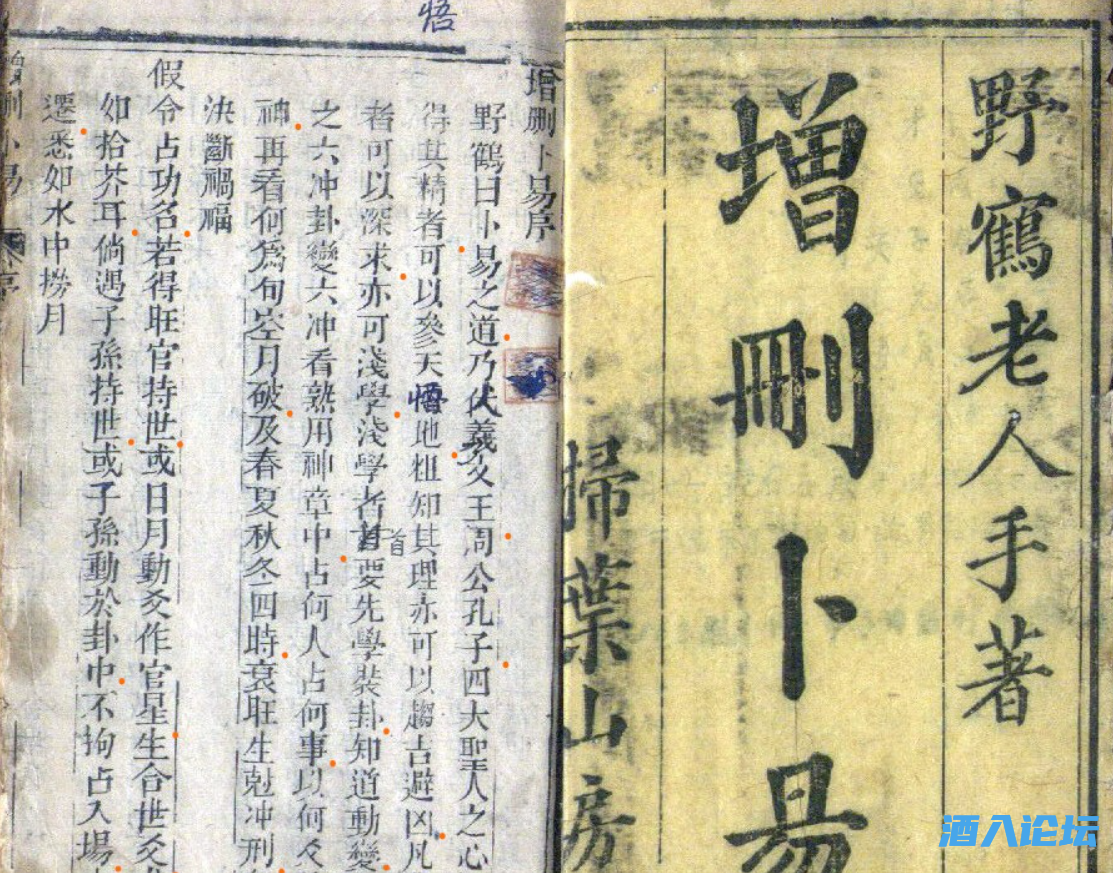 野鶴老人手著
增刪卜易
掃葉山房
悟
增刪卜易序
野鶴曰卜易之道乃伏羲文王周公孔子四大聖人之心
得其精者可以參天悟地粗知其理亦可以趨吉避凶凡
者可以深求亦可淺學淺學者首要先學裝卦知道動變
首
之六冲卦變六冲看熟用神章中占何人占何事以何爻
神再看何爲旬空月破及春夏秋冬四時衰旺生尅冲刑
決斷禍福
假令占功名若得旺官持世或日月動爻作官星生合世爻
如拾芥耳倘遇子孫持世或子孫動於卦中不拘占入場
遷悉如水中撈月
增刪卜易
序
酒入论坛